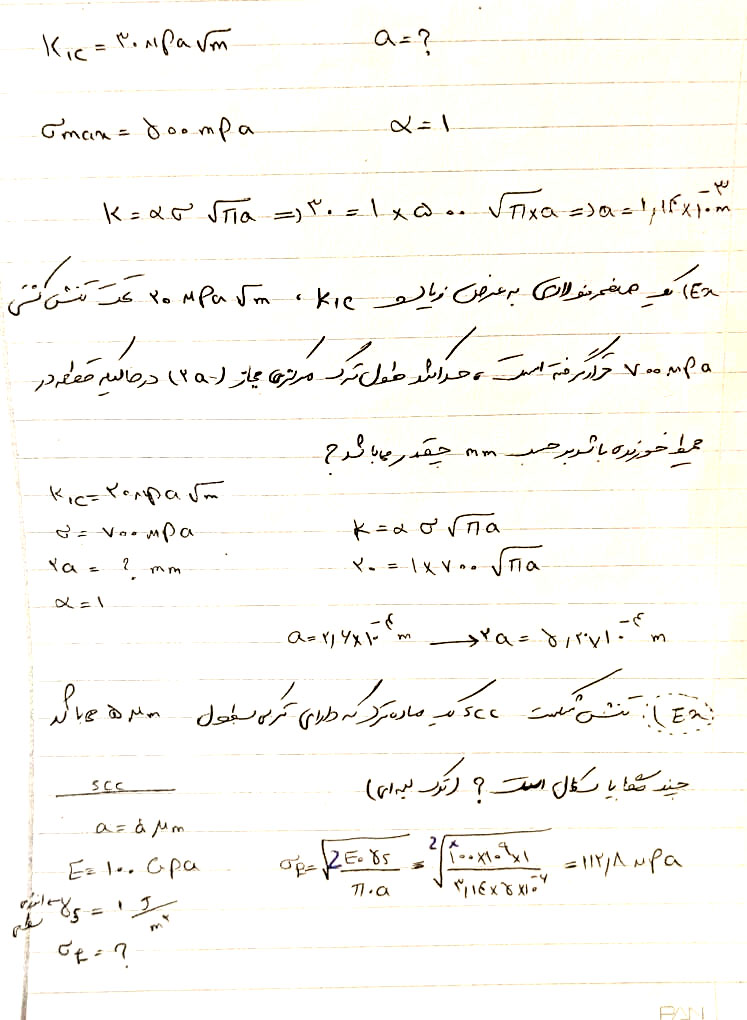 K_IC = ۳۰ MPa√m    a = ?
σmax = ۵۰۰ mpa    α = 1
K = ασ √πa ⇒ ۳۰ = 1 × ۵۰۰ √π×a ⇒ a = ۱٫۱۴×۱۰^-۳ m
Ex) یک صفحه فولادی به عرض زیاد و K_IC ، ۲۰ MPa√m تحت تنش کششی
۷۰۰ MPa قرار گرفته است ، حداکثر طول ترک مرکزی مجاز (۲a) در حالیکه قطعه در
محیط خورنده باشد بر حسب mm چقدر می باشد ?
K_IC = ۲۰ MPa √m
σ = ۷۰۰ MPa    K = ασ√πa
۲a = ? mm    ۲۰ = 1×۷۰۰ √πa
α = 1
a = ۲٫۶×۱۰^-۴ m → ۲a = ۵٫۲×۱۰^-۴ m
Ex): تنش شکست SCC یک ماده ترد که دارای ترکی بطول ۵ μm می باشد
چند مگاپاسکال است ? (ترک لبه ای)
SCC
a = ۵ μm
E = ۱۰۰ Gpa    σ_f = √(2E·γs / π·a) = √(2×۱۰۰×۱۰^۹×۱ / ۳٫۱۴×۵×۱۰^-۶) = ۱۱۲٫۸ MPa
انرژی سطحی γs = ۱ J/m^۲
σ_f = ?
PAN